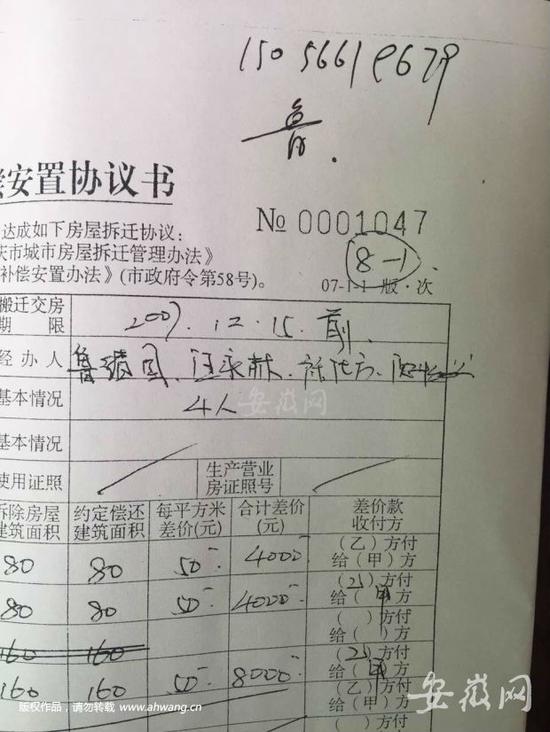 15056619679
鲁
偿安置协议书
№ 0001047
达成如下房屋拆迁协议:
庆市城市房屋拆迁管理办法》
补偿安置办法》(市政府令第58号)。
8-1
07-1-1 版·次
搬迁交房期限 2007.12.15.前
经办人
基本情况 4人
基本情况
使用证照 生产营业房证照号
拆除房屋建筑面积 约定偿还建筑面积 每平方米差价(元) 合计差价(元) 差价款收付方
80 80 50- 4000- (乙)方付给(甲)方
80 80 50- 4000- (乙)方付给(甲)方
( )方付给( )方
160 160
160 160 50- 8000- (乙)方付给(甲)方
(乙)方付给(甲)方
( )方付
安徽网
安徽网
版权作品,请勿转载 www.ahwang.cn